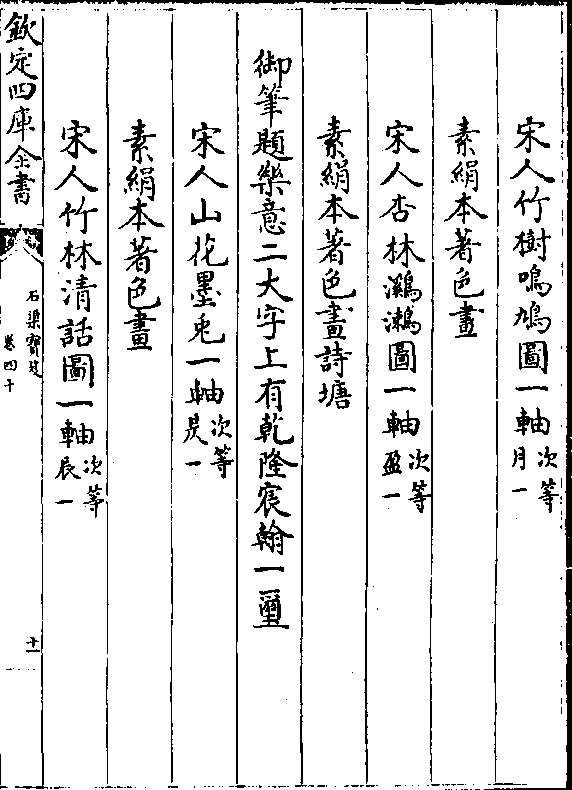 宋人竹樹鳴鳩圖一軸次等月一
素絹本著色畫
宋人杏林鸂鶒圖一軸次等盈一
素絹本著色畫詩塘
御筆題樂意二大字上有乾隆宸翰一璽
宋人山花墨兔一軸次等昃一
素絹本著色畫
宋人竹林清話圖一軸次等辰一
欽定四庫全書
石渠寶笈
卷四十
十一